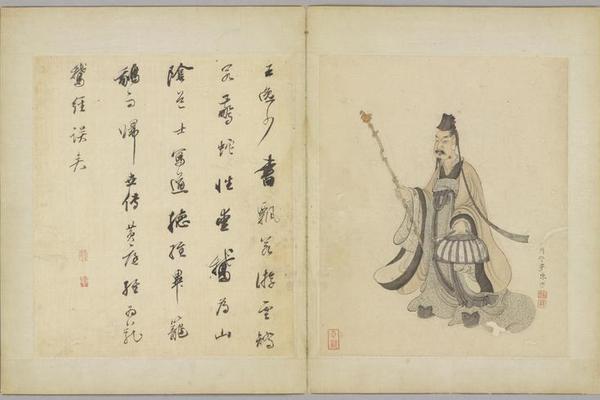 王逸少書飄若游雲矯
若驚蛇性愛鵝為山
陰道士寫道德經畢籠
鵝而歸世傳黃庭經
鵝經誤矣